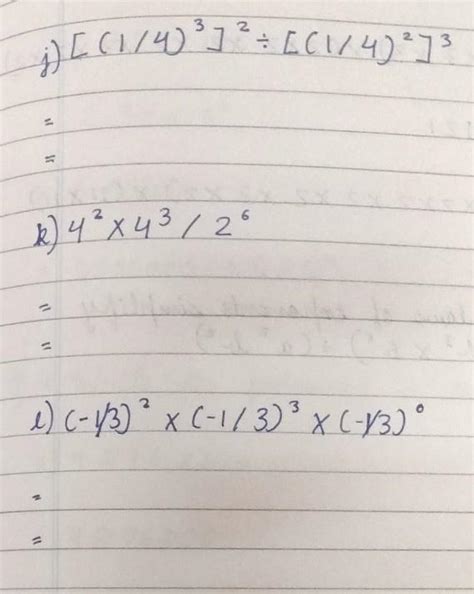 j) [(1/4)³]² ÷ [(1/4)²]³
=
=
k) 4² x 4³ / 2⁶
=
=
l) (-1/3)² x (-1/3)³ x (-1/3)⁰
=
=